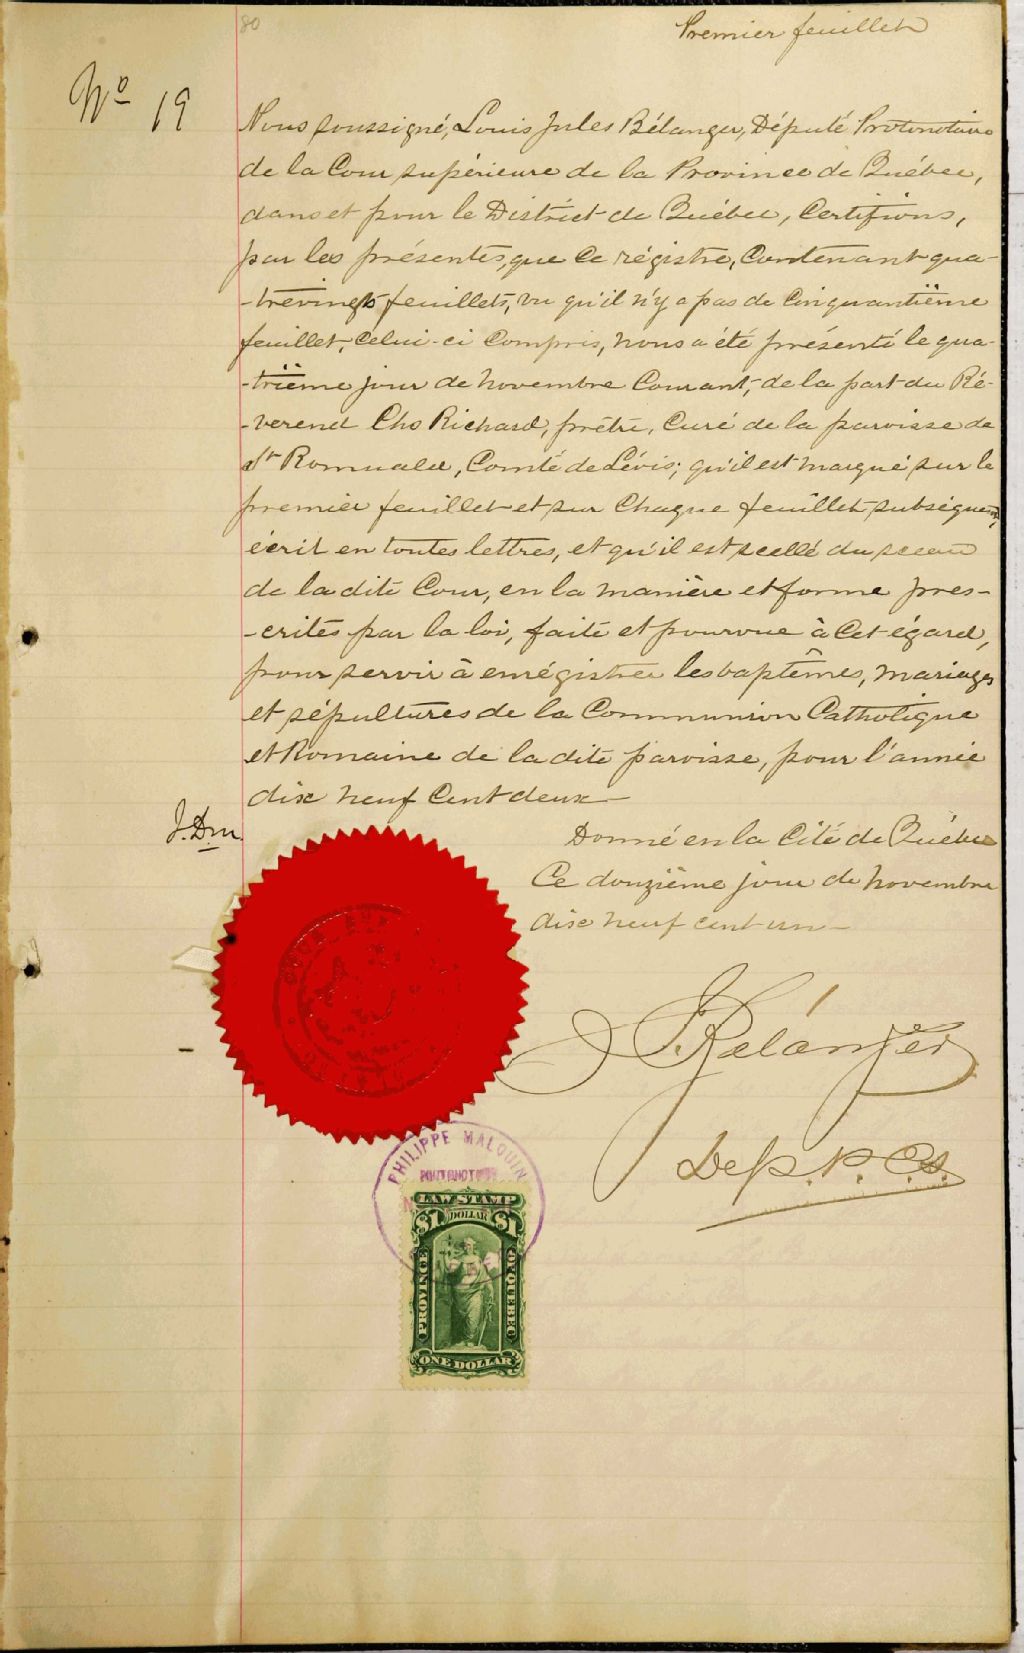 80
Premier feuillet
No 19
Nous soussigné, Louis Jules Bélanger, Député Protonotaire
de la Cour supérieure de la Province de Québec,
dans et pour le District de Québec, Certifions,
par les présentes, que ce régistre, Contenant qua-
-trevingts feuillets, vu qu'il n'y a pas de Cinquantième
feuillet, Celui-ci Compris, nous a été présenté le qua-
-trième jour de Novembre Courant, de la part du Ré-
-verend Chs Richard, prêtre, Curé de la paroisse de
St Romuald, Comté de Lévis; qu'il est marqué sur le
premier feuillet et sur Chaque feuillet subséquent,
écrit en toutes lettres, et qu'il est scellé du sceau
de la dite Cour, en la manière et forme pres-
-crites par la loi, faite et pourvue à Cet égard,
pour servir à enrégistrer les baptêmes, mariages
et sépultures de la Communion Catholique
et Romaine de la dite paroisse, pour l'année
dix neuf Cent deux
Donné en la Cité de Québec
Ce douzième jour de Novembre
dix neuf cent un
Bélanger
Dep. P. C.S.
PHILIPPE MALOUIN
LAW STAMP
$1 DOLLAR $1
PROVINCE OF QUEBEC
ONE DOLLAR